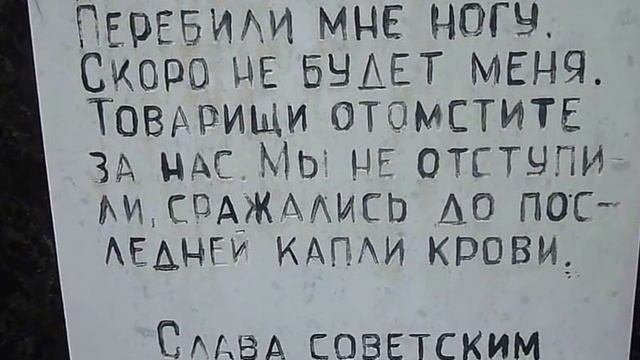 ПЕРЕБИЛИ МНЕ НОГУ.
СКОРО НЕ БУДЕТ МЕНЯ.
ТОВАРИЩИ ОТОМСТИТЕ
ЗА НАС. МЫ НЕ ОТСТУПИ-
ЛИ, СРАЖАЛИСЬ ДО ПОС-
ЛЕДНЕЙ КАПЛИ КРОВИ.
СЛАВА СОВЕТСКИМ